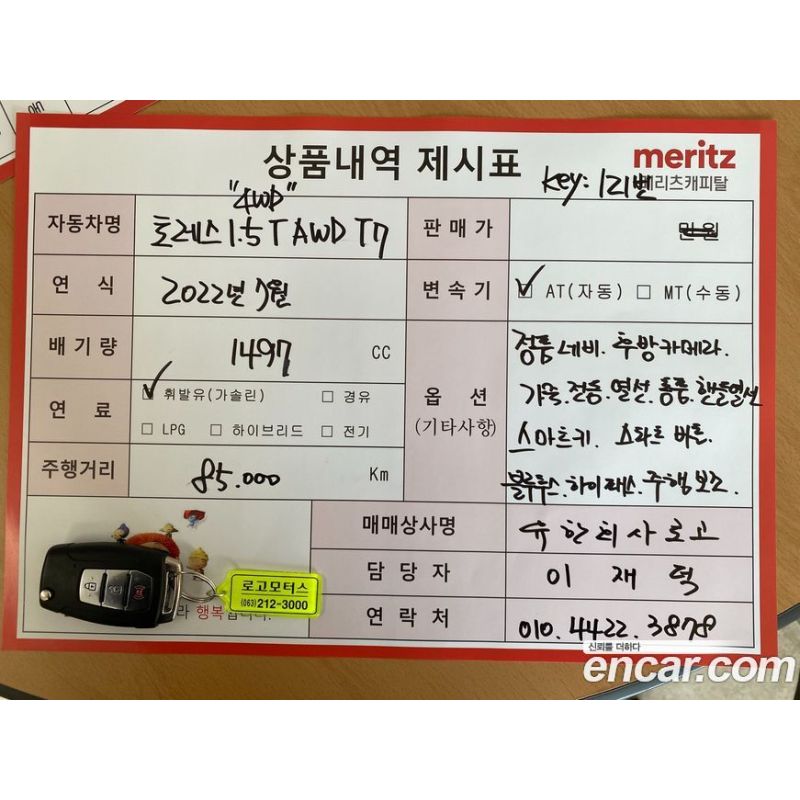 상품내역 제시표
meritz
메리츠캐피탈
key: 1리벤
"4WD"
자동차명 토레스 1.5T AWD T7
판매가 만원
연 식 2022년 7월
변속기 AT(자동) MT(수동)
배기량 1497 CC
연 료 휘발유(가솔린) 경유
LPG 하이브리드 전기
주행거리 85.000 Km
옵 션
(기타사항)
정품네비. 후방카메라.
가죽.전동.열선.통풍.핸들열선
스마트키. 스타트버튼.
블루투스.하이패스.주행보조.
매매상사명 주식회사로고
담당자 이재덕
연락처 010.4422.3878
로고모터스
(063)212-3000
행복
신뢰를 더하다
encar.com